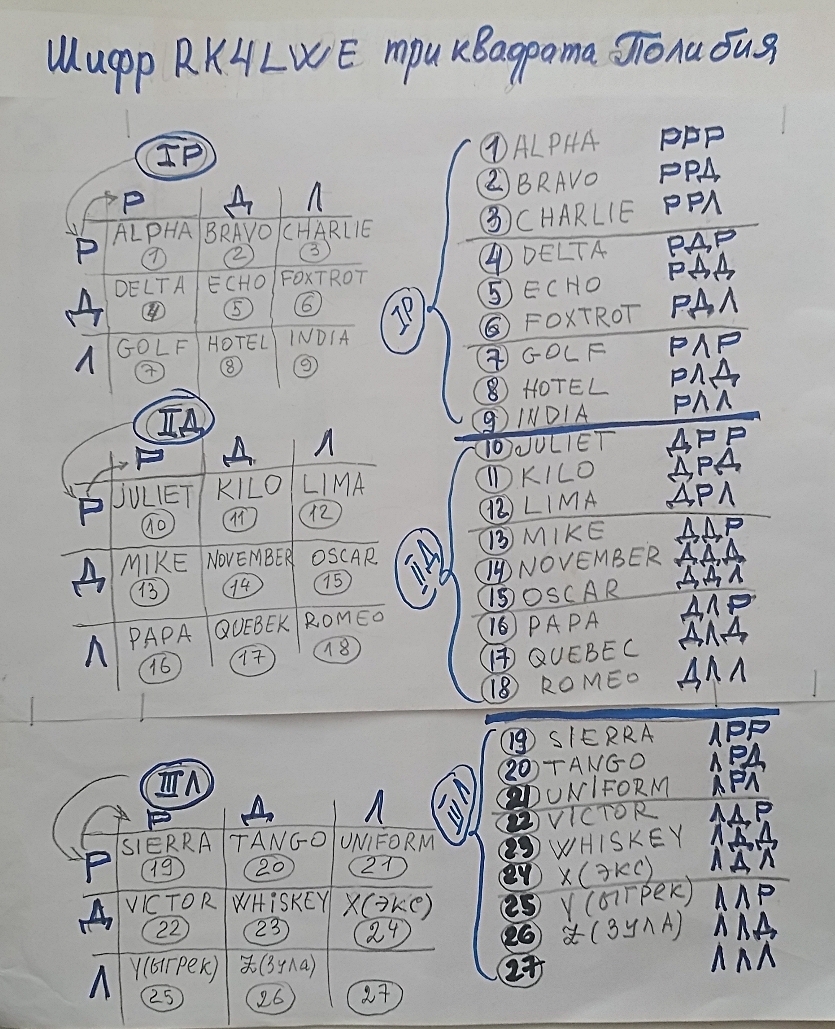 Шифр RK4LWE три квадрата Полибия
IP
Р Д Л
Р ALPHA BRAVO CHARLIE
1 2 3
Д DELTA ECHO FOXTROT
4 5 6
Л GOLF HOTEL INDIA
7 8 9
IP
1 ALPHA РРР
2 BRAVO РРД
3 CHARLIE РРЛ
4 DELTA РДР
5 ECHO РДД
6 FOXTROT РДЛ
7 GOLF РЛР
8 HOTEL РЛД
9 INDIA РЛЛ
IIД
Р Д Л
Р JULIET KILO LIMA
10 11 12
Д MIKE NOVEMBER OSCAR
13 14 15
Л PAPA QUEBEK ROMEO
16 17 18
IIД
10 JULIET ДРР
11 KILO ДРД
12 LIMA ДРЛ
13 MIKE ДДР
14 NOVEMBER ДДД
15 OSCAR ДДЛ
16 PAPA ДЛР
17 QUEBEC ДЛД
18 ROMEO ДЛЛ
IIIЛ
Р Д Л
Р SIERRA TANGO UNIFORM
19 20 21
Д VICTOR WHISKEY X(экс)
22 23 24
Л Y(ыгрек) Z(Зула)
25 26 27
IIIЛ
19 SIERRA ЛРР
20 TANGO ЛРД
21 UNIFORM ЛРЛ
22 VICTOR ЛДР
23 WHISKEY ЛДД
24 X(экс) ЛДЛ
25 Y(ыгрек) ЛЛР
26 Z(ЗУЛА) ЛЛД
27 ЛЛЛ